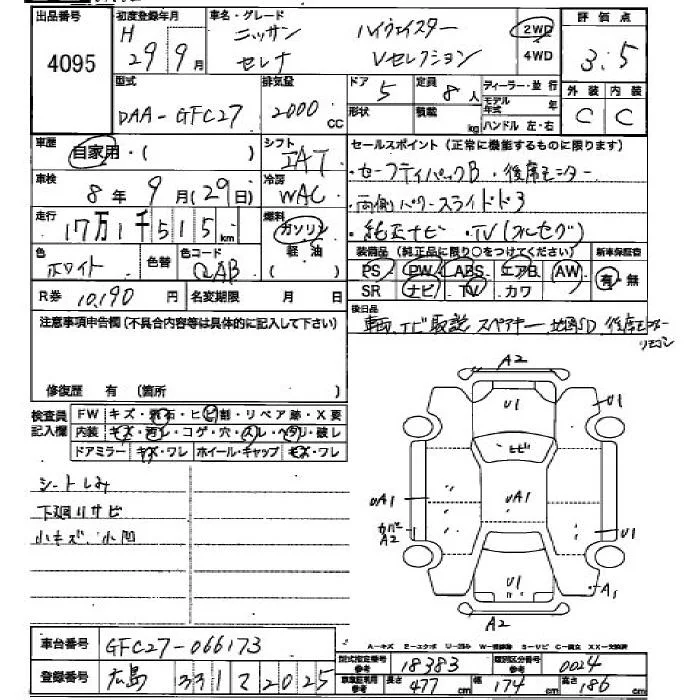 出品番号 初度登録年月 車名・グレード 評価点
4095 H 29年9月 ニッサン ハイウェイスター 2WD 3.5
セレナ Vセレクション 4WD
型式 排気量 ドア 5 定員 8人 ディーラー・並行 外装 内装
DAA-GFC27 2000cc 形状 積載 kg モデル年式 年 C C
ハンドル 左・右
車歴 自家用・( ) シフト IAT セールスポイント (正常に機能するものに限ります)
車検 8年9月(29日) 冷房 WAC ・セーフティパックB ・後席モニター
・両側パワースライドドア
走行 17万1千515km 燃料 ガソリン 軽油 ・純正ナビ ・TV(フルセグ)
色 ホワイト 色替 色コード QAB 装備品 (純正品に限り○をつけてください) 新車保証書
PS PW ABS エアB AW 有・無
R券 10,190円 名変期限 月 日 SR ナビ TV カワ
注意事項申告欄 (不具合内容等は具体的に記入して下さい) 後日品
車両、ナビ取説 スペアキー 地図SD 後席モニターリモコン
修復歴 有 (箇所 )
検査員記入欄 FW キズ・飛石・ヒビ割・リペア跡・X要
内装 キズ・汚レ・コゲ・穴・スレ・ヘタリ・破レ
ドアミラー キズ・ワレ ホイール・キャップ キズ・ワレ
シートしみ
下廻りサビ
小キズ、小凹
A2
U1 U1
ヒビ
UA1 UA1
カバーA2 U1
U1 A1
A2
A-キズ E-エクボ U-凹み W-補修跡 S-サビ C-腐食 XX-交換済
車台番号 GFC27-066173
型式指定番号 参考 18383 類別区分番号 参考 0024
登録番号 広島 331 て 2025 車検証利用 参考 長さ 477cm 幅 174cm 高さ 186cm